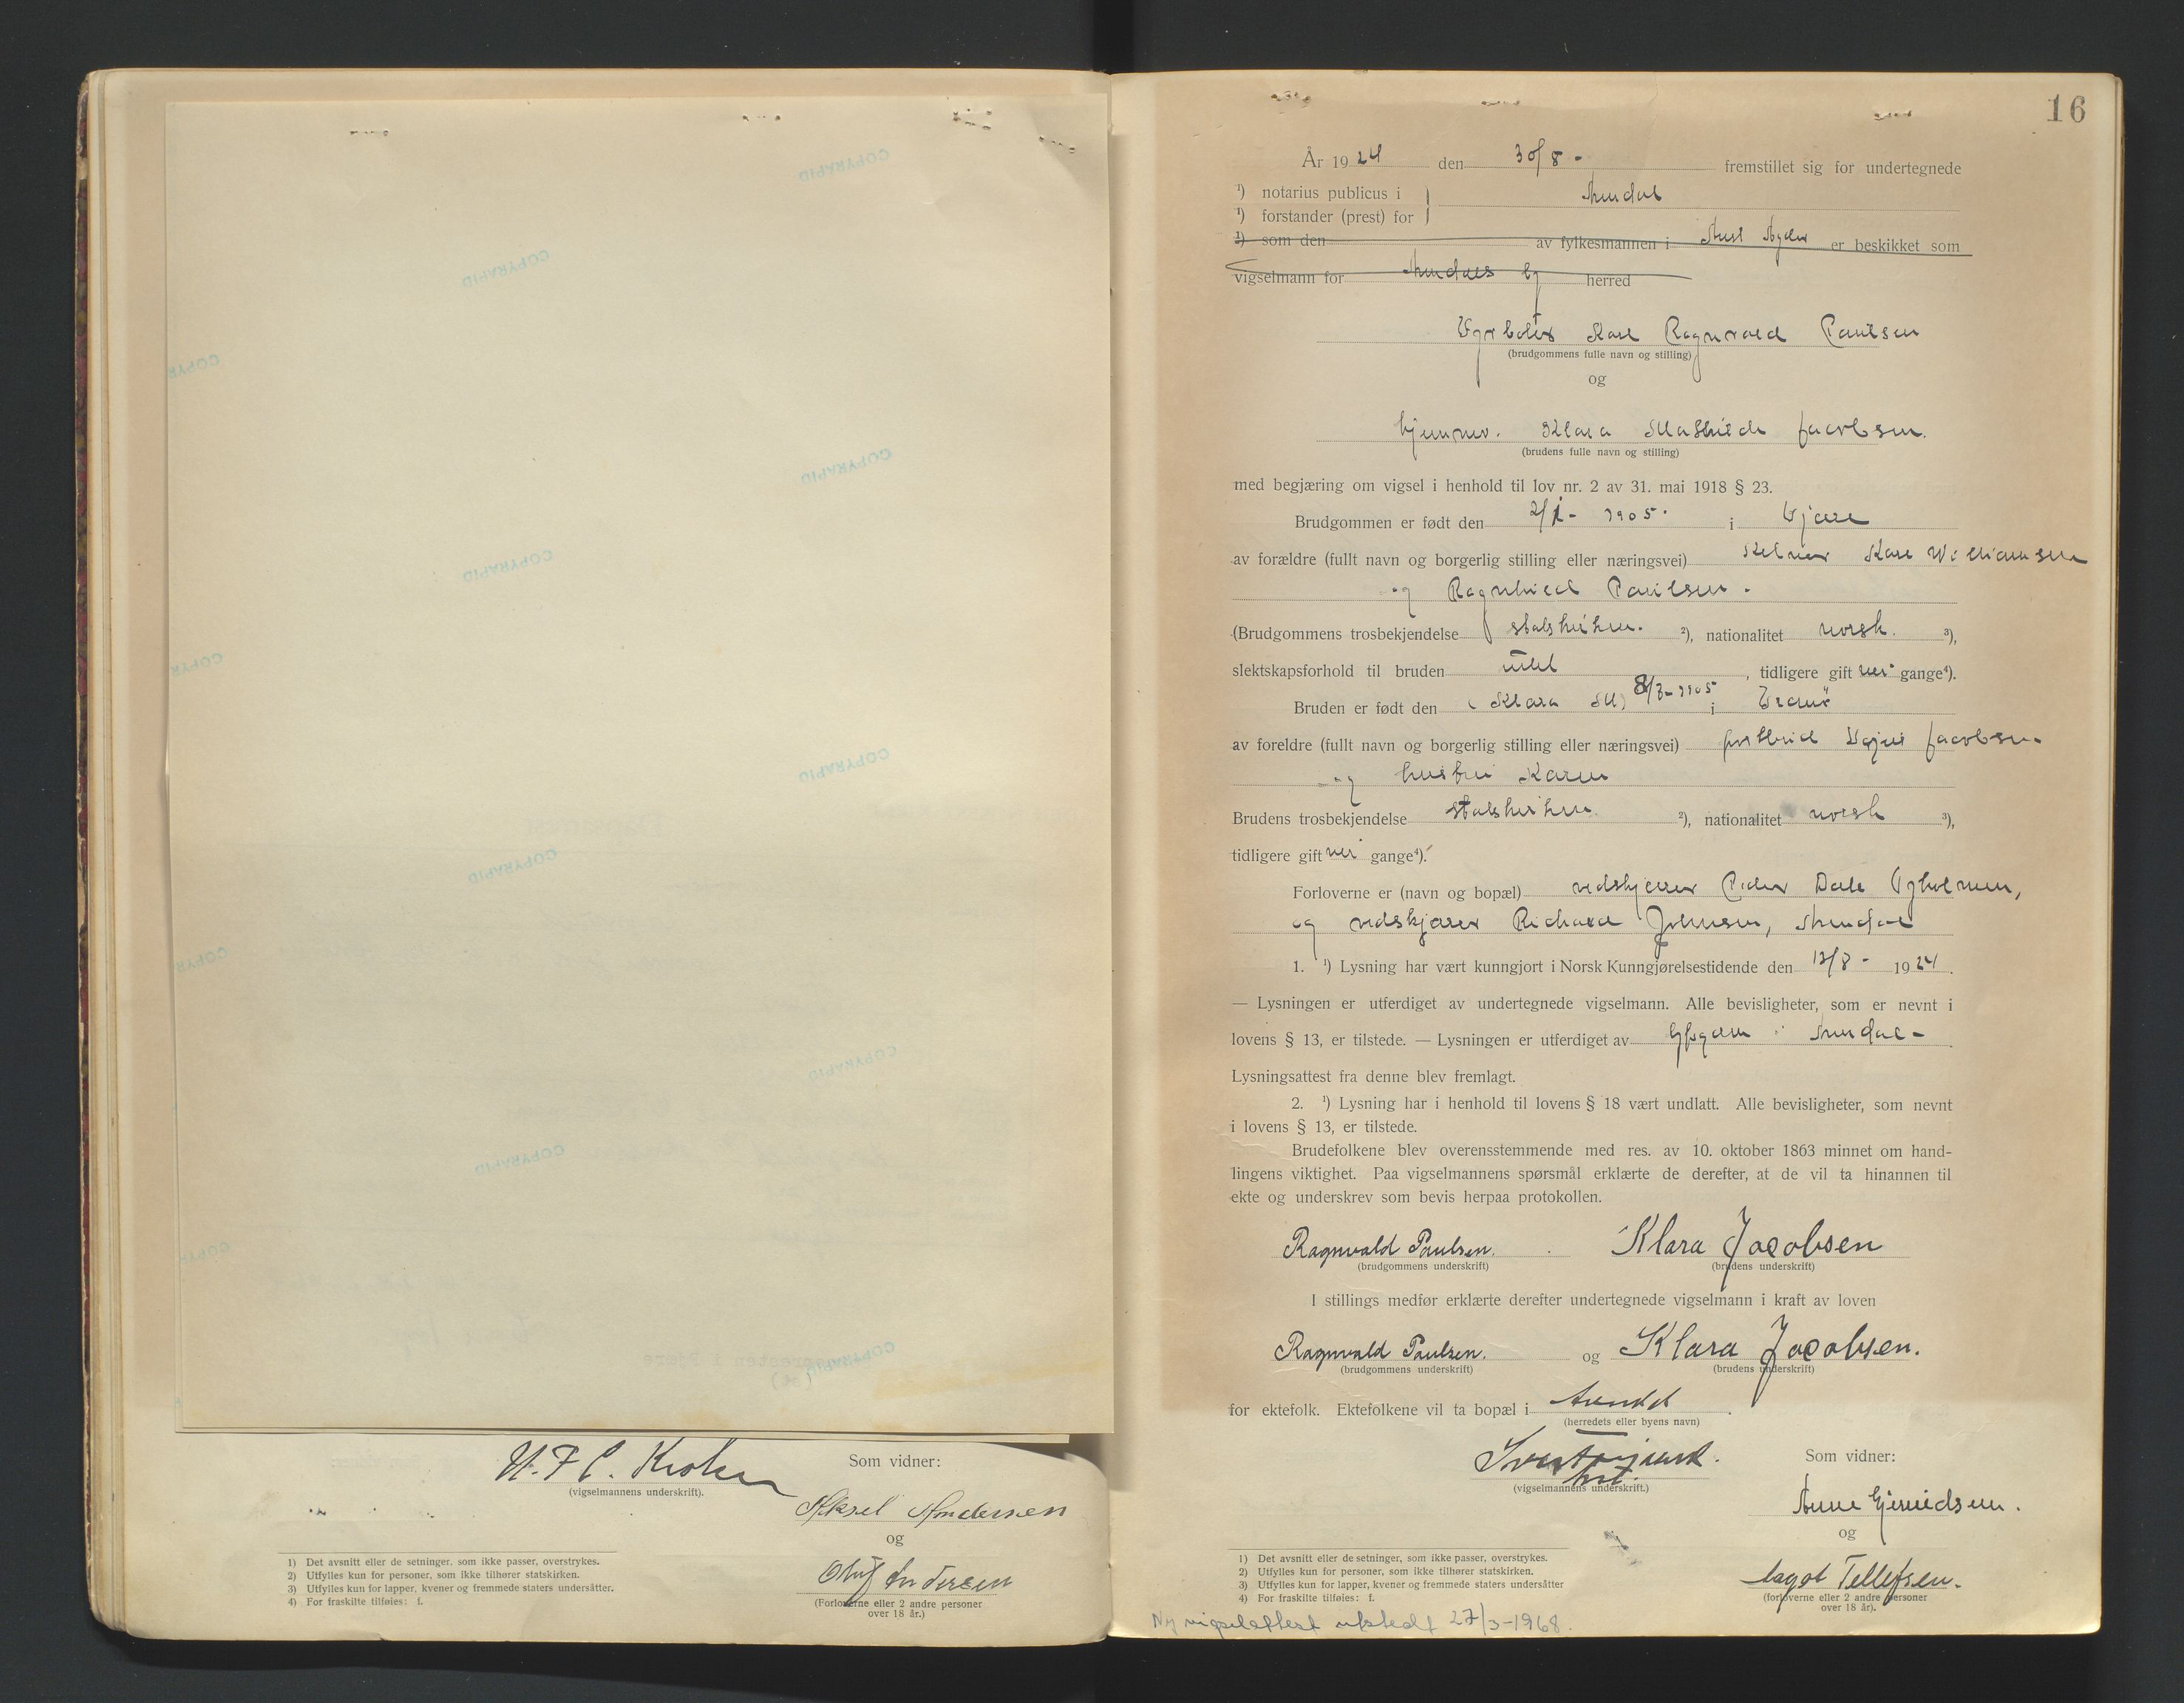 COPYRAPID
COPYRAPID
COPYR
COPYRAPID
COPYRAPID
COPYR
COPYRAPID
COPYRAPID
COPYR
COPYRAPID
COPYRAPID
COPYR
COPYRAPID
(vigselmannens underskrift).
Som vidner:
Aksel Andersen
og
Oluf Andersen
(Forloverne eller 2 andre personer
over 18 år.)
1) Det avsnitt eller de setninger, som ikke passer, overstrykes.
2) Utfylles kun for personer, som ikke tilhører statskirken.
3) Utfylles kun for lapper, kvener og fremmede staters undersåtter.
4) For fraskilte tilføies: f.
16
År 1924 den 30/8 - fremstillet sig for undertegnede
1) notarius publicus i
Arendal
1) forstander (prest) for
1) som den av fylkesmannen i Aust Agder er beskikket som
vigselmann for Arendals by herred
Karl Ragnvald Paulsen
(brudgommens fulle navn og stilling)
og
Klara Mathilde Jacobsen.
(brudens fulle navn og stilling)
med begjæring om vigsel i henhold til lov nr. 2 av 31. mai 1918 § 23.
Brudgommen er født den 2/1 - 1905. i
av forældre (fullt navn og borgerlig stilling eller næringsvei) Karl Williamsen
og Ragnhild Paulsen.
(Brudgommens trosbekjendelse statskirken. 2), nationalitet norsk. 3),
slektskapsforhold til bruden intet, tidligere gift nei gange4).
Bruden er født den (Klara M) 8/3-1905 i Tromø
av foreldre (fullt navn og borgerlig stilling eller næringsvei) Jacobsen
og hustru Karen
Brudens trosbekjendelse statskirken 2), nationalitet norsk 3),
tidligere gift nei gange4).
Forloverne er (navn og bopæl) vedskjærer Peder Dale
og vedskjærer Richard Johnsen, Arendal
1. 1) Lysning har vært kunngjort i Norsk Kunngjørelsestidende den 12/8 - 1924.
— Lysningen er utferdiget av undertegnede vigselmann. Alle bevisligheter, som er nevnt i
lovens § 13, er tilstede. — Lysningen er utferdiget av Arendal -
Lysningsattest fra denne blev fremlagt.
2. 1) Lysning har i henhold til lovens § 18 vært undlatt. Alle bevisligheter, som nevnt
i lovens § 13, er tilstede.
Brudefolkene blev overensstemmende med res. av 10. oktober 1863 minnet om hand-
lingens viktighet. Paa vigselmannens spørsmål erklærte de derefter, at de vil ta hinannen til
ekte og underskrev som bevis herpaa protokollen.
Ragnvald Paulsen. Klara Jacobsen
(brudgommens underskrift) (brudens underskrift)
I stillings medfør erklærte derefter undertegnede vigselmann i kraft av loven
Ragnvald Paulsen. og Klara Jacobsen.
(brudgommens underskrift) (brudens underskrift)
for ektefolk. Ektefolkene vil ta bopæl i Arendal.
(herredets eller byens navn)
(vigselmannens underskrift.)
Som vidner:
Anne
og
Aagot Tellefsen.
(forloverne eller 2 andre personer
over 18 år).
1) Det avsnitt eller de setninger, som ikke passer, overstrykes.
2) Utfylles kun for personer, som ikke tilhører statskirken.
3) Utfylles kun for lapper, kvener og fremmede staters undersåtter
4) For fraskilte tilføies: f.
Ny vigselattest utstedt 27/3-1968.